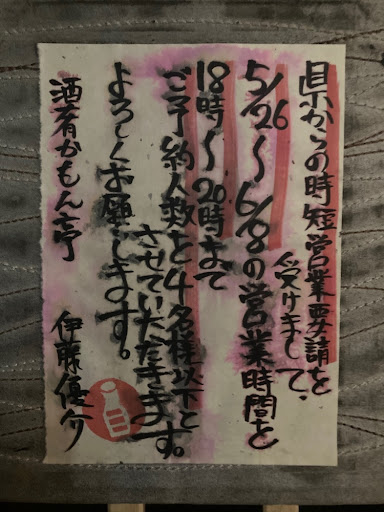 県からの時短営業要請を
受けまして、
5/26〜6/8の営業時間を
18時〜20時まで
ご予約人数を4名様以下と
させていただきます。
よろしくお願いします。
酒肴かもん亭
伊藤優介